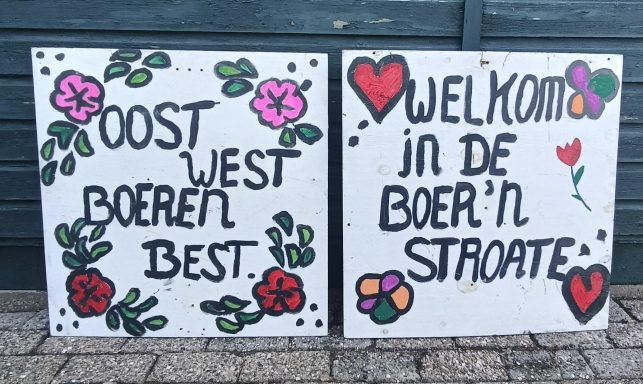 OOST
WEST
BOEREN
BEST.
WELKOM
in DE
BOER'n
STROATE